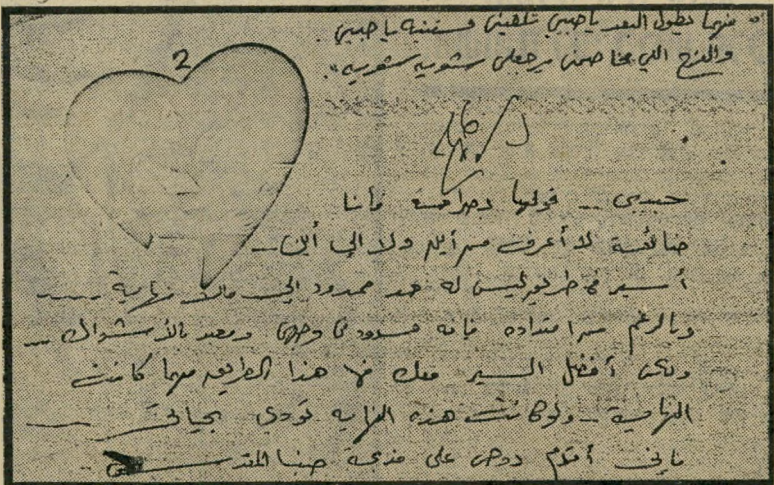 " مهما يطول البعد يا حبيبي تلاقيني مستنيه يا حبيبي
والفرح اللي مخاصمني يرجعلي شويه شويه ".
2
حبيبي .. قولها بصراحة فأنا
ضائعة لا أعرف من أين ولا الى أين ..
أسير في طريق ليس له حد ممدود الى مالا نهاية ....
وبالرغم من امتداده فانه مسدود في وجهي ومعبد بالأشواك ..
ولكن أفضل السير معك في هذا الطريق مهما كانت
النهاية .. ولو كانت هذه النهاية تودي بحياتي ....
فاني أقدم روحي على مذبح حبنا المقدس